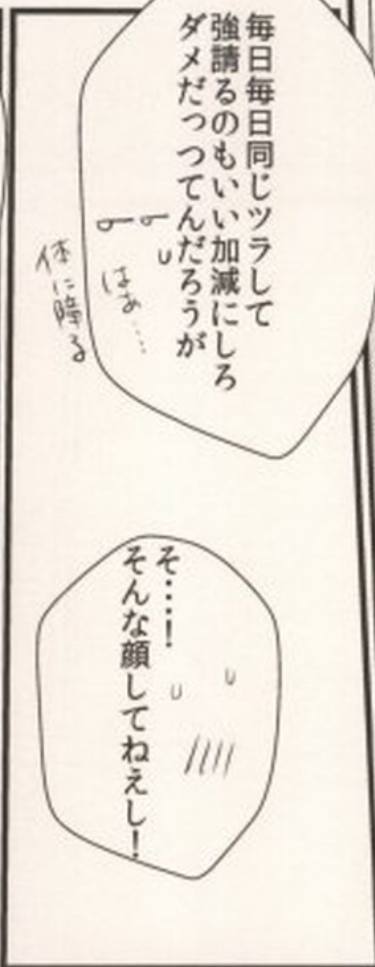 毎日毎日同じツラして
強請るのもいい加減にしろ
ダメだっつてんだろうが
はぁ…
体に障る
そ…!
そんな顔してねえし!